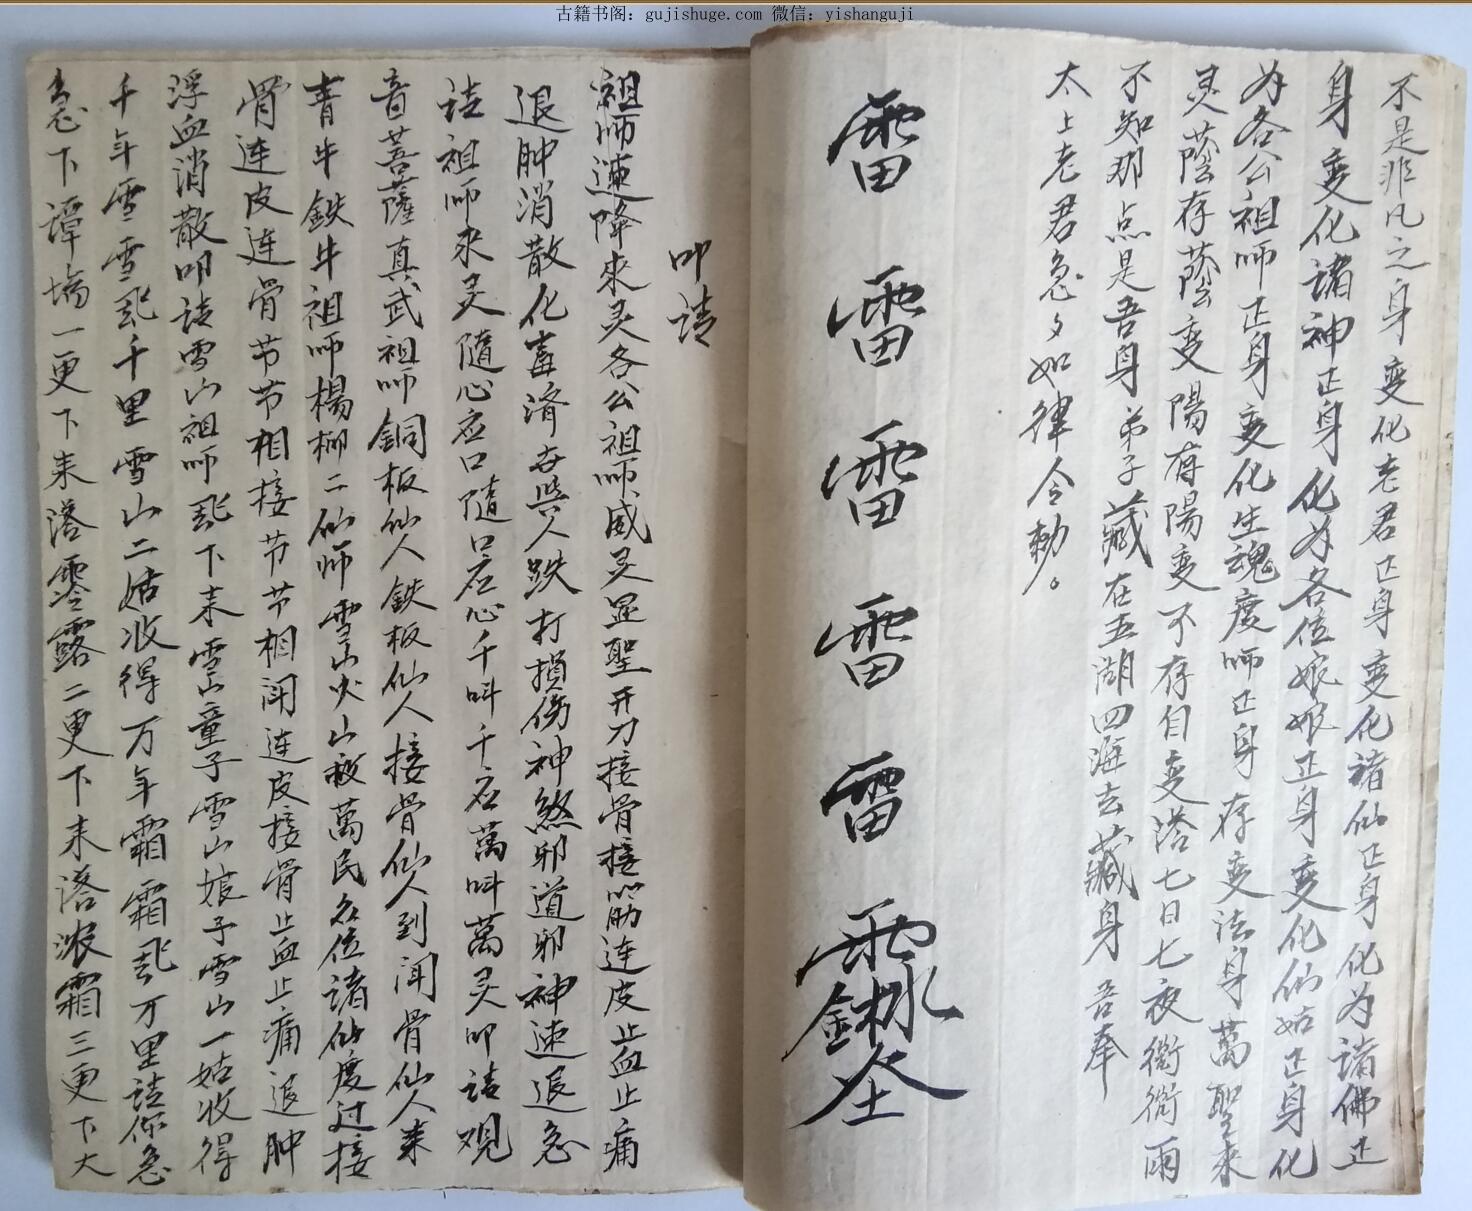 古籍书阁：gujishuge.com 微信：yishanguji
不是非凡之身变化老君正身变化诸仙正身化为诸佛正
身变化诸神正身化为各位娘娘正身变化仙姑正身化
为各公祖师正身变化生魂度师正身存变法身萬聖来
灵蔭存蔭变陽存陽变不存自变落七日七夜衙衙雨
不知那点是吾身弟子藏在五湖四海去藏身吾奉
太上老君急々如律令勅。
雷雷雷雷雷
叩请
祖师速降來灵各公祖师威灵显聖开刀接骨接筋连皮止血止痛
退肿消散化毒濟在與人跌打损傷神煞邪道邪神速退急
请祖师來灵隨心应口隨口应心千叫千应萬叫萬灵叩请观
音菩薩真武祖师銅板仙人鉄板仙人接骨仙人到闻骨仙人来
青牛鉄牛祖师楊柳二仙师雪山火山救萬民众位諸仙度过接
骨连皮连骨节节相接节节相闻连皮接骨止血止痛退肿
浮血消散叩请雪山祖师飛下来雪山童子雪山娘子雪山一姑收得
千年雪雪飛千里雪山二姑收得万年霜霜飛万里请你急
急下譚塲一更下来落零露二更下来落浓霜三更下大